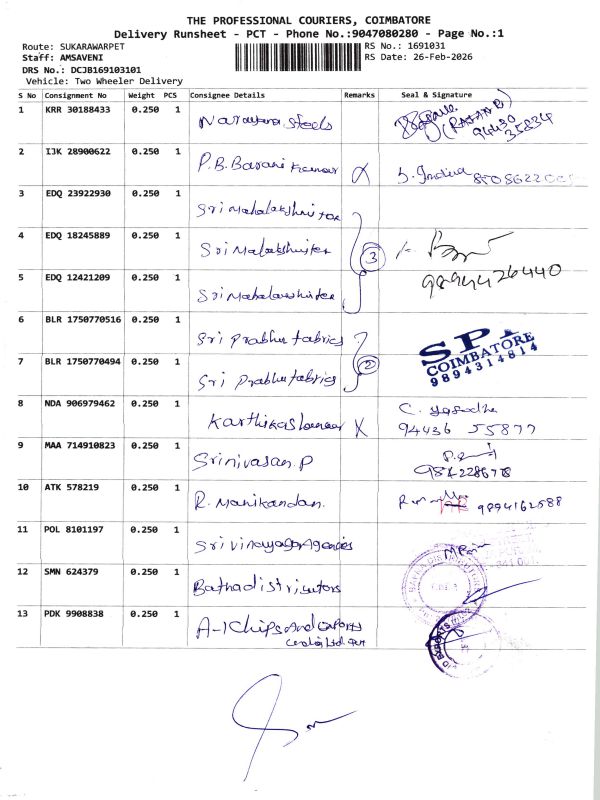 THE PROFESSIONAL COURIERS, COIMBATORE
Delivery Runsheet - PCT - Phone No.:9047080280 - Page No.:1
Route: SUKARAWARPET
RS No.: 1691031
Staff: AMSAVENI
RS Date: 26-Feb-2026
DRS No.: DCJB169103101
Vehicle: Two Wheeler Delivery
S No Consignment No Weight PCS Consignee Details Remarks Seal & Signature
1 KRR 30188433 0.250 1 Narayana Steels 94430 35834
2 IJK 28900622 0.250 1 P.B. Barani Kumar
3 EDQ 23922930 0.250 1 Sri Mahalakshmi Tex
4 EDQ 18245889 0.250 1 Sri Mahalakshmi Tex 3
5 EDQ 12421209 0.250 1 Sri Mahalakshmi Tex 9894426440
6 BLR 1750770516 0.250 1 Sri Prabhu fabrics
7 BLR 1750770494 0.250 1 Sri Prabhu fabrics 2 SPF COIMBATORE 9894314814
8 NDA 906979462 0.250 1 C. Yasodha
94436 55877
9 MAA 714910823 0.250 1 Srinivasan.P
10 ATK 578219 0.250 1 R. Manikandan. 9894162588
11 POL 8101197 0.250 1 Sri Vinayaga Agencies
12 SMN 624379 0.250 1 Bathra distributors
13 PDK 9908838 0.250 1 A-1 Chips and Exports